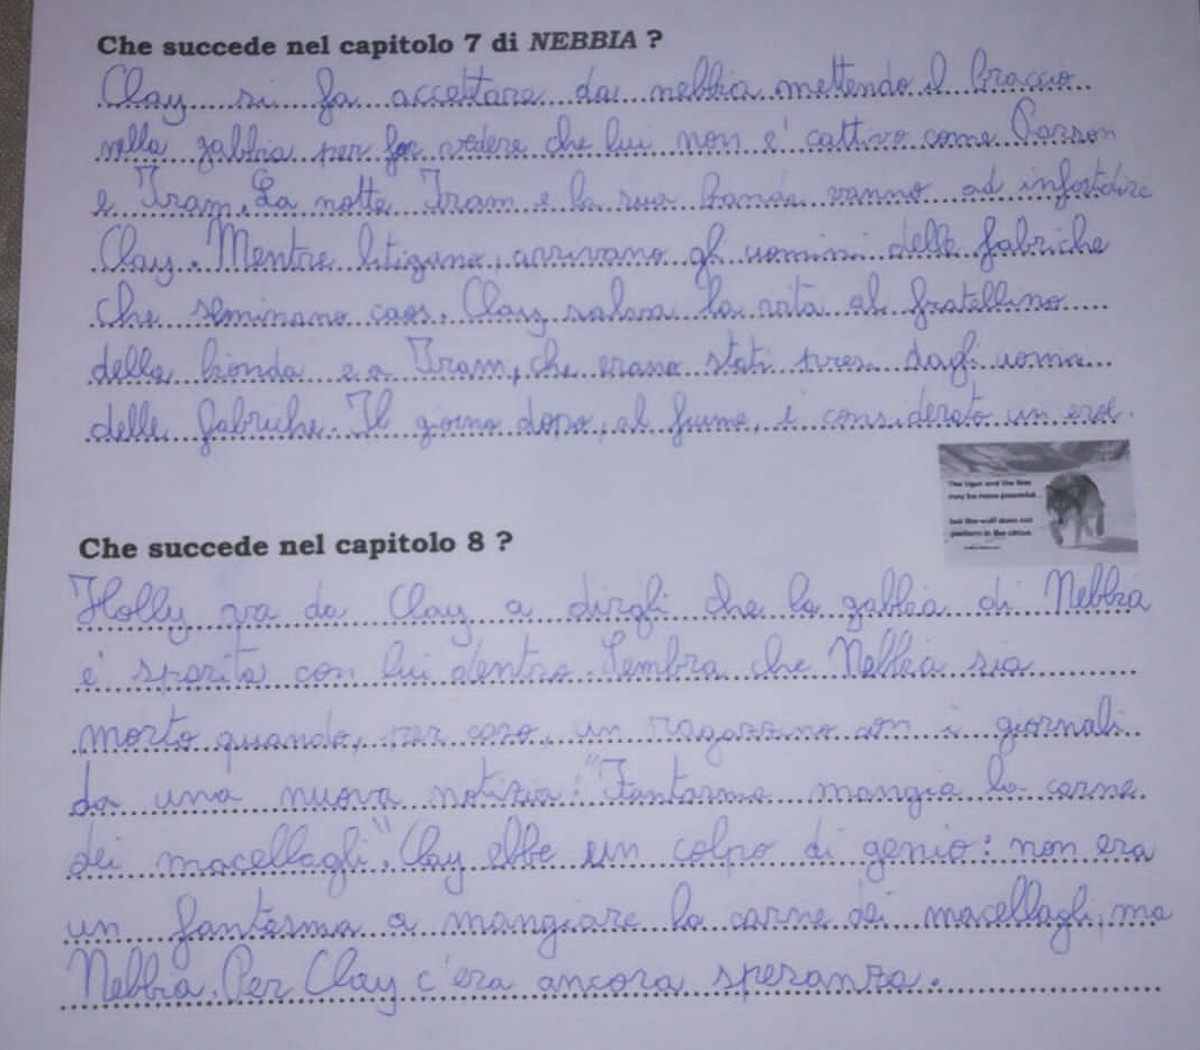 Che succede nel capitolo 7 di NEBBIA ?
Clay si fa accettare da nebbia mettendo il braccio
nella gabbia per far vedere che lui non è cattivo come
e Tram. La notte Tram e la sua banda vanno ad infastidire
Clay. Mentre litigano, arrivano gli uomini delle fabriche
che seminano caos. Clay salva la vita al fratellino
della bionda e a Tram, che erano stati presi dagli uomini
delle fabriche. Il giorno dopo, al fiume, è considerato un eroe.
The tiger and the lion
may be more powerful...
but the wolf does not
perform in the circus
Che succede nel capitolo 8 ?
Holly va da Clay a dirgli che la gabbia di Nebbia
è sparita con lui dentro. Sembra che Nebbia sia
morto quando, per caso, un ragazzino con i giornali
da una nuova notizia: "Fantasma mangia la carne
dei macellagli". Clay ebbe un colpo di genio: non era
un fantasma a mangiare la carne dei macellagli, ma
Nebbia. Per Clay c'era ancora speranza.